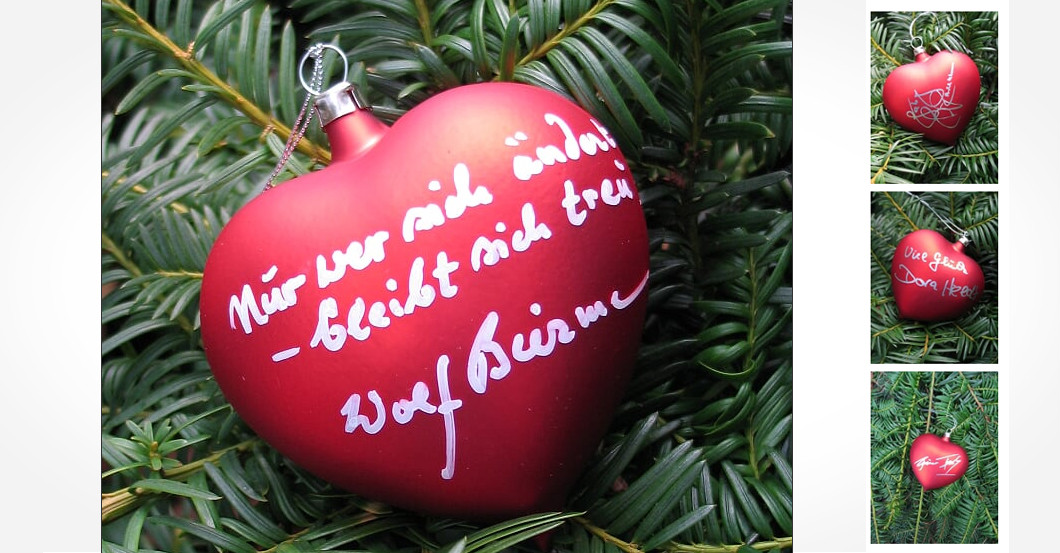 Nur wer sich ändert
– bleibt sich treu
Wolf Bierma
Viel Glück
Dora Heldt